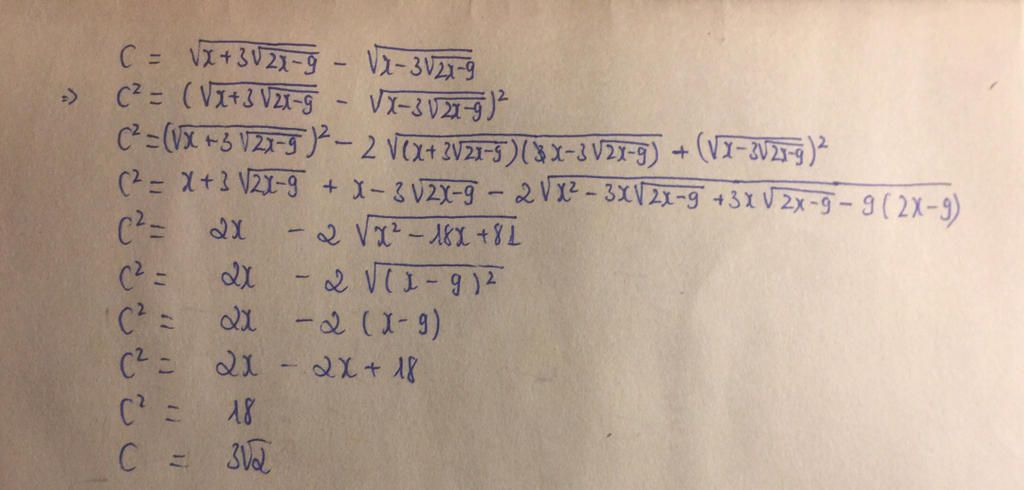 C = √(x+3√(2x-9)) - √(x-3√(2x-9))
=> C² = (√(x+3√(2x-9)) - √(x-3√(2x-9)))²
C² = (√(x+3√(2x-9)))² - 2√((x+3√(2x-9))(x-3√(2x-9))) + (√(x-3√(2x-9)))²
C² = x+3√(2x-9) + x-3√(2x-9) - 2√(x² - 3x√(2x-9) + 3x√(2x-9) - 9(2x-9))
C² = 2x - 2√(x² - 18x + 81)
C² = 2x - 2√((x-9)²)
C² = 2x - 2(x-9)
C² = 2x - 2x + 18
C² = 18
C = 3√2